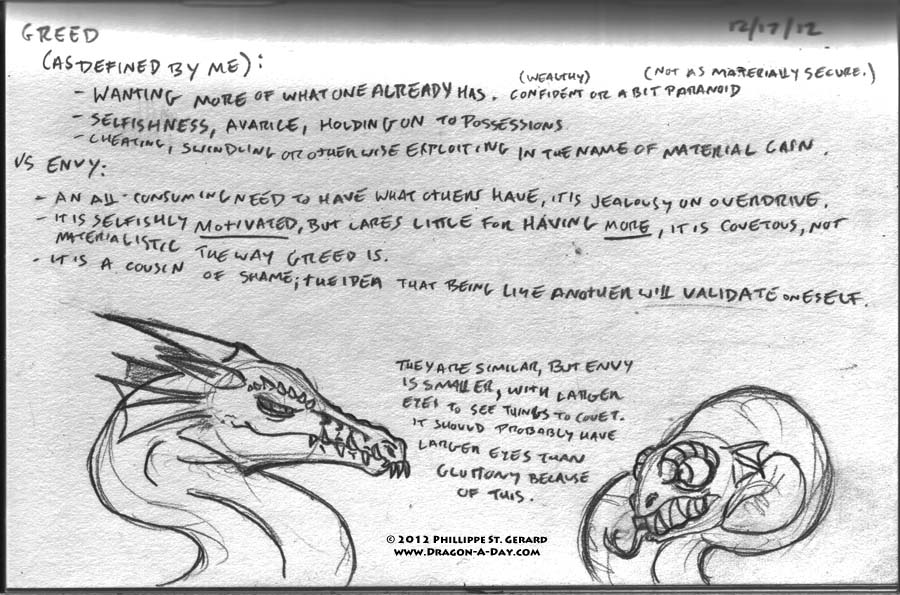 GREED
12/17/12
(AS DEFINED BY ME):
(WEALTHY) (NOT AS MATERIALLY SECURE.)
- WANTING MORE OF WHAT ONE ALREADY HAS. CONFIDENT OR A BIT PARANOID
- SELFISHNESS, AVARICE, HOLDING ON TO POSSESSIONS
- CHEATING, SWINDLING OR OTHERWISE EXPLOITING IN THE NAME OF MATERIAL GAIN.
VS ENVY:
- AN ALL-CONSUMING NEED TO HAVE WHAT OTHERS HAVE, IT IS JEALOUSY ON OVERDRIVE.
- IT IS SELFISHLY MOTIVATED, BUT CARES LITTLE FOR HAVING MORE, IT IS COVETOUS, NOT
MATERIALISTIC THE WAY GREED IS.
- IT IS A COUSIN OF SHAME; THE IDEA THAT BEING LIKE ANOTHER WILL VALIDATE ONESELF.
THEY ARE SIMILAR, BUT ENVY
IS SMALLER, WITH LARGER
EYES TO SEE THINGS TO COVET.
IT SHOULD PROBABLY HAVE
LARGER EYES THAN
GLUTTONY BECAUSE
OF THIS.
© 2012 PHILLIPPE ST. GERARD
WWW.DRAGON-A-DAY.COM